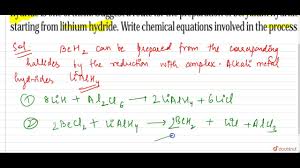 starting from lithium hydride. Write chemical equations involved in the process
Sol BeH2 can be prepared from the corresponding
halides by the reduction with complex Alkali metal
hydrides LiAlH4
① 8LiH + Al2Cl6 → 2LiAlH4 + 6LiCl
② 2BeCl2 + LiAlH4 → 2BeH2 + LiCl + AlCl3
doubtnut